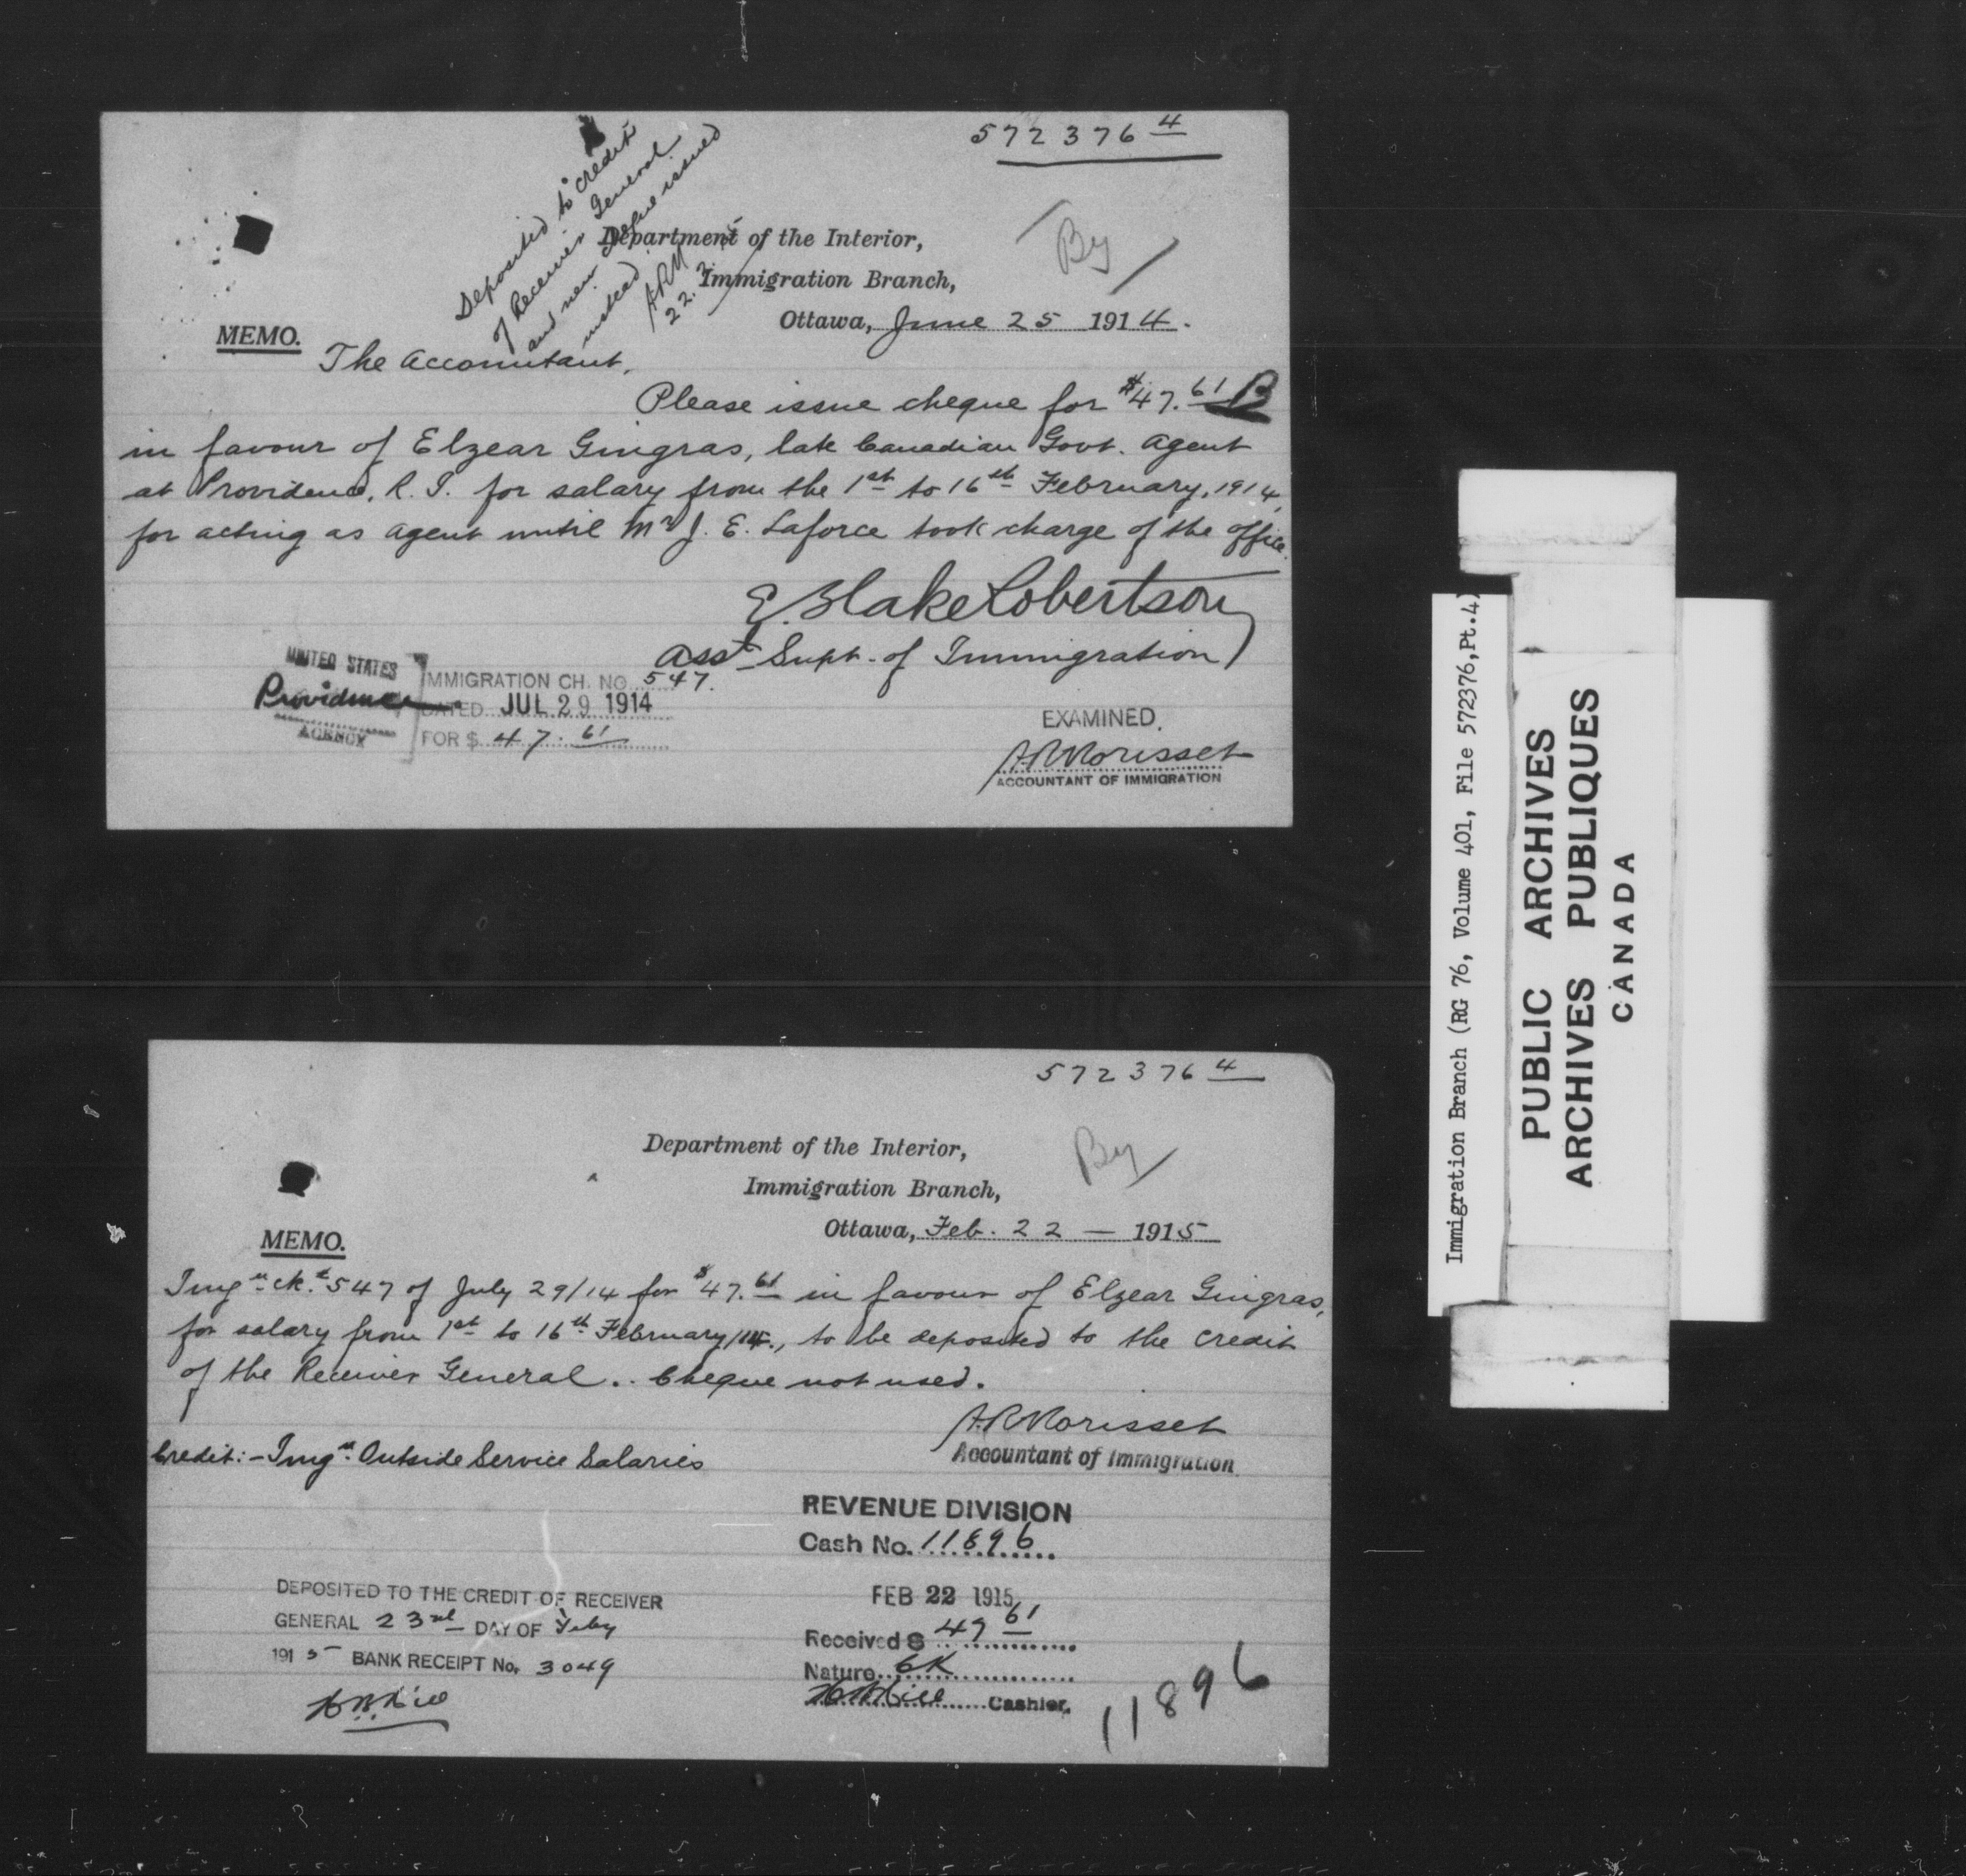 572376 4
Deposited to credit
of Receiver General
and new cheque issued
instead.
ARM
22.2.
Department of the Interior,
Immigration Branch,
By
Ottawa, June 25 1914.
MEMO.
The Accountant,
Please issue cheque for $47.61
in favour of Elzear Gingras, late Canadian Govt. Agent
at Providence, R. I. for salary from the 1st to 16th February, 1914,
for acting as agent until Mr J. E. Laforce took charge of the office.
E. Blake Robertson
Asst Supt. of Immigration
UNITED STATES
Providence
AGENCY
IMMIGRATION CH. NO 547.
DATED JUL 29 1914
FOR $ 47.61
EXAMINED.
A.R. Morisset
ACCOUNTANT OF IMMIGRATION
572376 4
Department of the Interior,
Immigration Branch,
By
Ottawa, Feb. 22 — 1915
MEMO.
Imgn ck. 547 of July 29/14 for $47.61 in favour of Elzear Gingras,
for salary from 1st to 16th February/14., to be deposited to the credit
of the Receiver General.. Cheque not used.
A.R. Morisset
Accountant of Immigration
Credit:- Imgn Outside Service Salaries
REVENUE DIVISION
Cash No. 11896
FEB 22 1915
Received $ 47 61
Nature CK
Cashier.
11896
DEPOSITED TO THE CREDIT OF RECEIVER
GENERAL 23rd DAY OF Feby
1915 BANK RECEIPT No. 3049
Immigration Branch (RG 76, Volume 401, File 572376, Pt.4)
PUBLIC ARCHIVES
ARCHIVES PUBLIQUES
CANADA